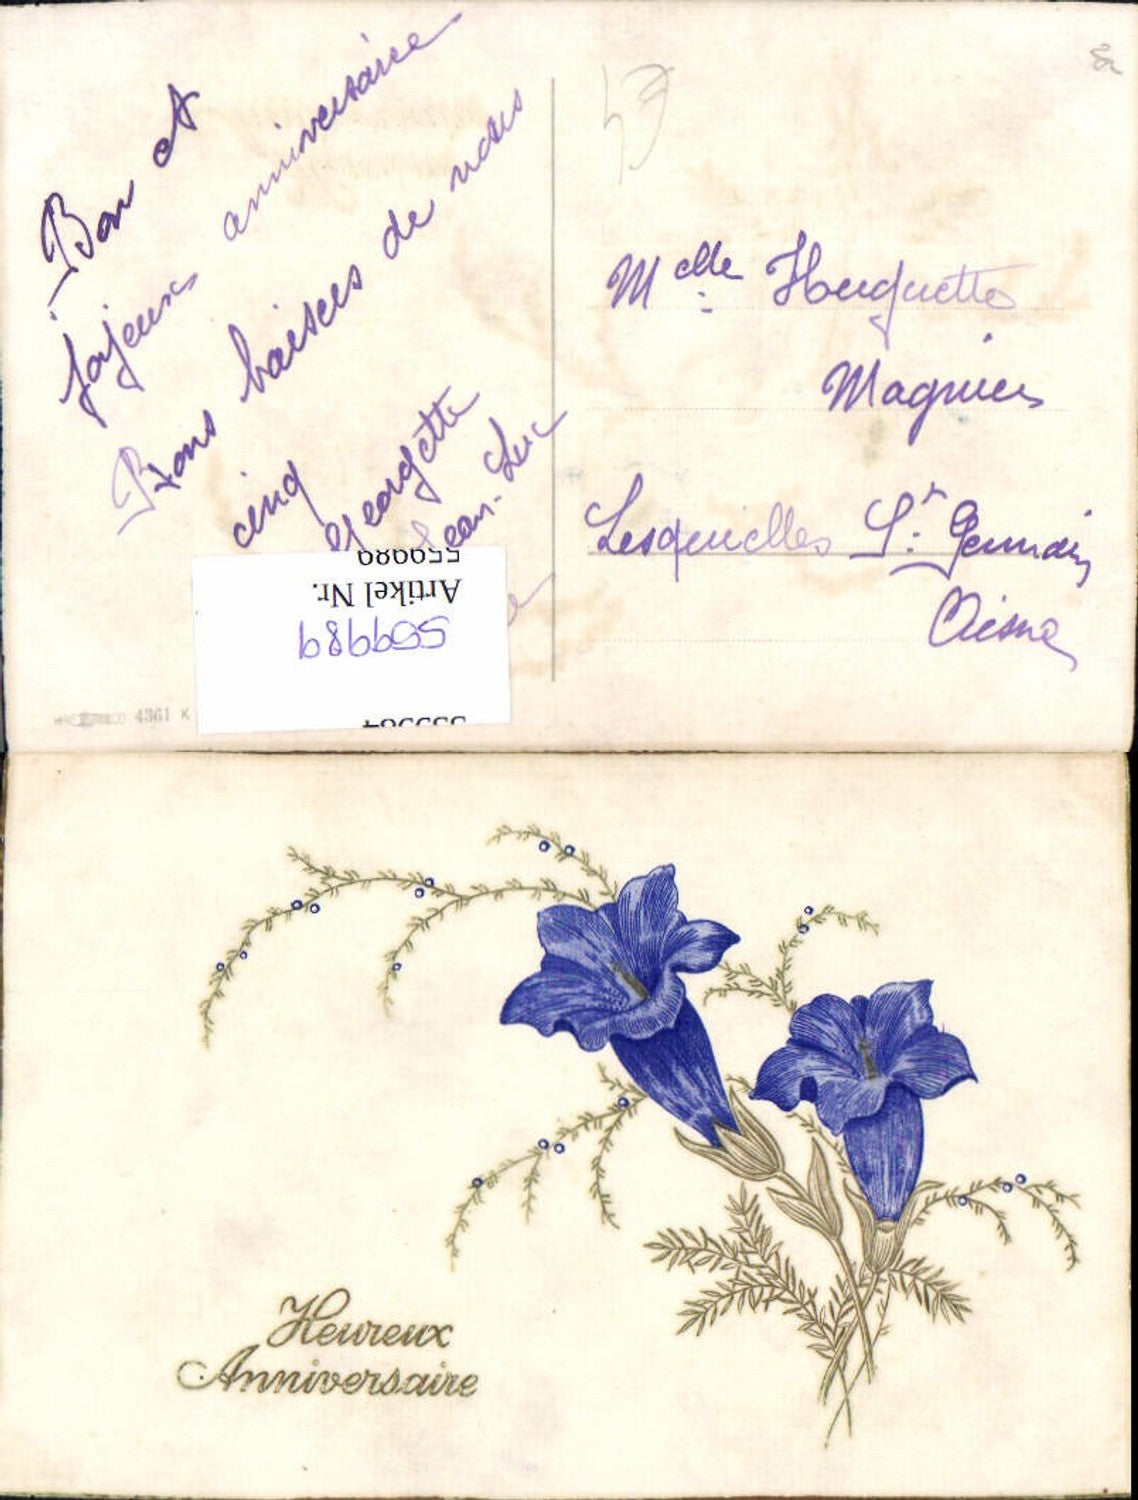 Bon et
joyeux anniversaire
Bons baisers de nous
cinq
Georgette
Jean-Luc
Melle Huguette
Magnier
Lesquielles St. Germain
Aisne
559989
Artikel Nr.
559989
4361 K
Heureux
Anniversaire